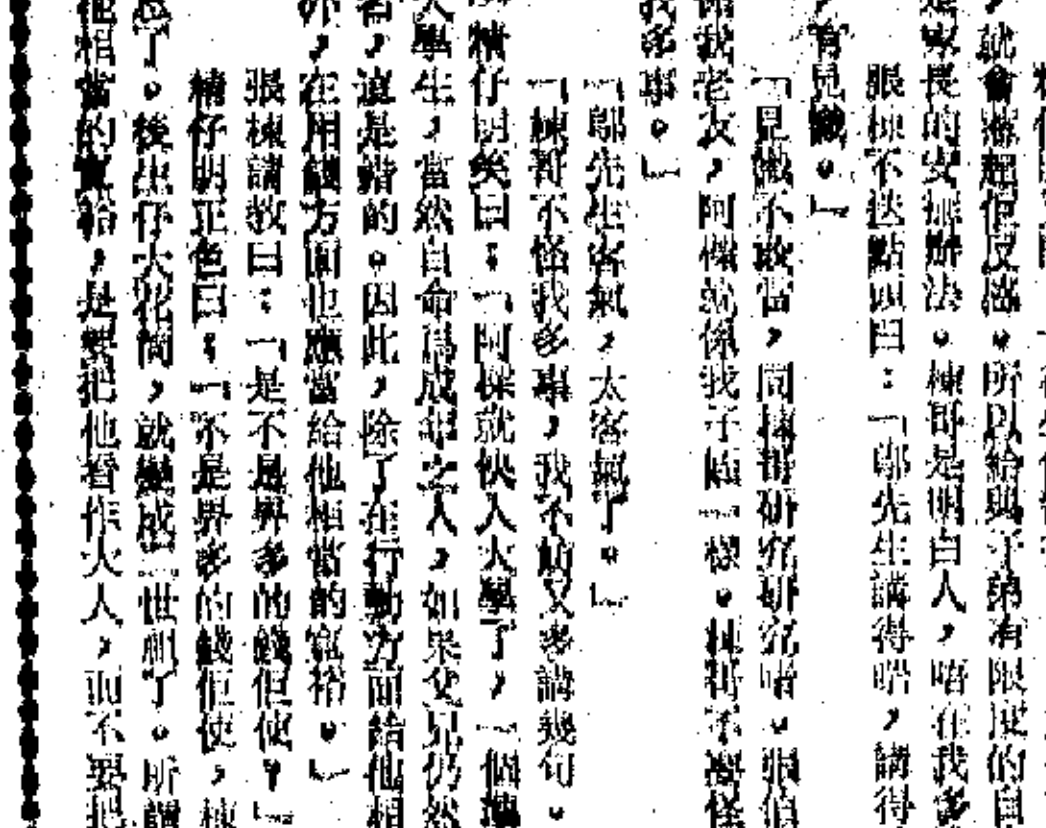 ，就會激起佢反感。所以給與子弟有限度的自
是家長的安排辦法。棟哥是明白人，唔在我多
張棟不迭點頭曰：「鄔先生講得啱，講得
，有見識。」
「見識不敢當，同棟哥研究研究啫。張伯
係我老友，阿燦就係我子姪一樣。棟哥不會怪
我多事。」
「鄔先生客氣，太客氣了。」
「棟哥不怪我多事，我不妨又多講幾句。」
精仔明笑曰：「阿燦就快入大學了，一個
大學生，當然自命爲成年之人，如果父兄仍然
，這是錯的。因此，除了在行動方面給他相
外，在用錢方面也應當給他相當的寬裕。」
張棟請教曰：「是不是畀多的錢佢使？」
精仔明正色曰：「不是畀多的錢佢使，棟
了。後生仔大花筒，就變成二世祖了。所謂
他相當的寬裕，是要把他看作大人，而不要把